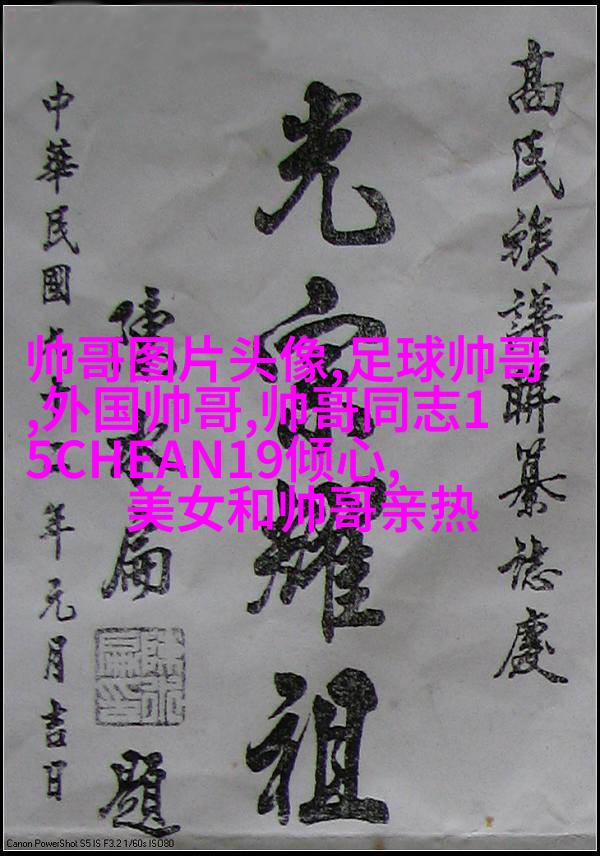 高氏族譜聯纂誌慶
光宗耀祖
陳水扁
題
中華民國
年元月吉日
帅哥图片头像,足球帅哥
,外国帅哥,帅哥同志1
5CHEAN19倾心,
美女和帅哥亲热
Canon PowerShot S5 IS F3.2 1/60s ISO80